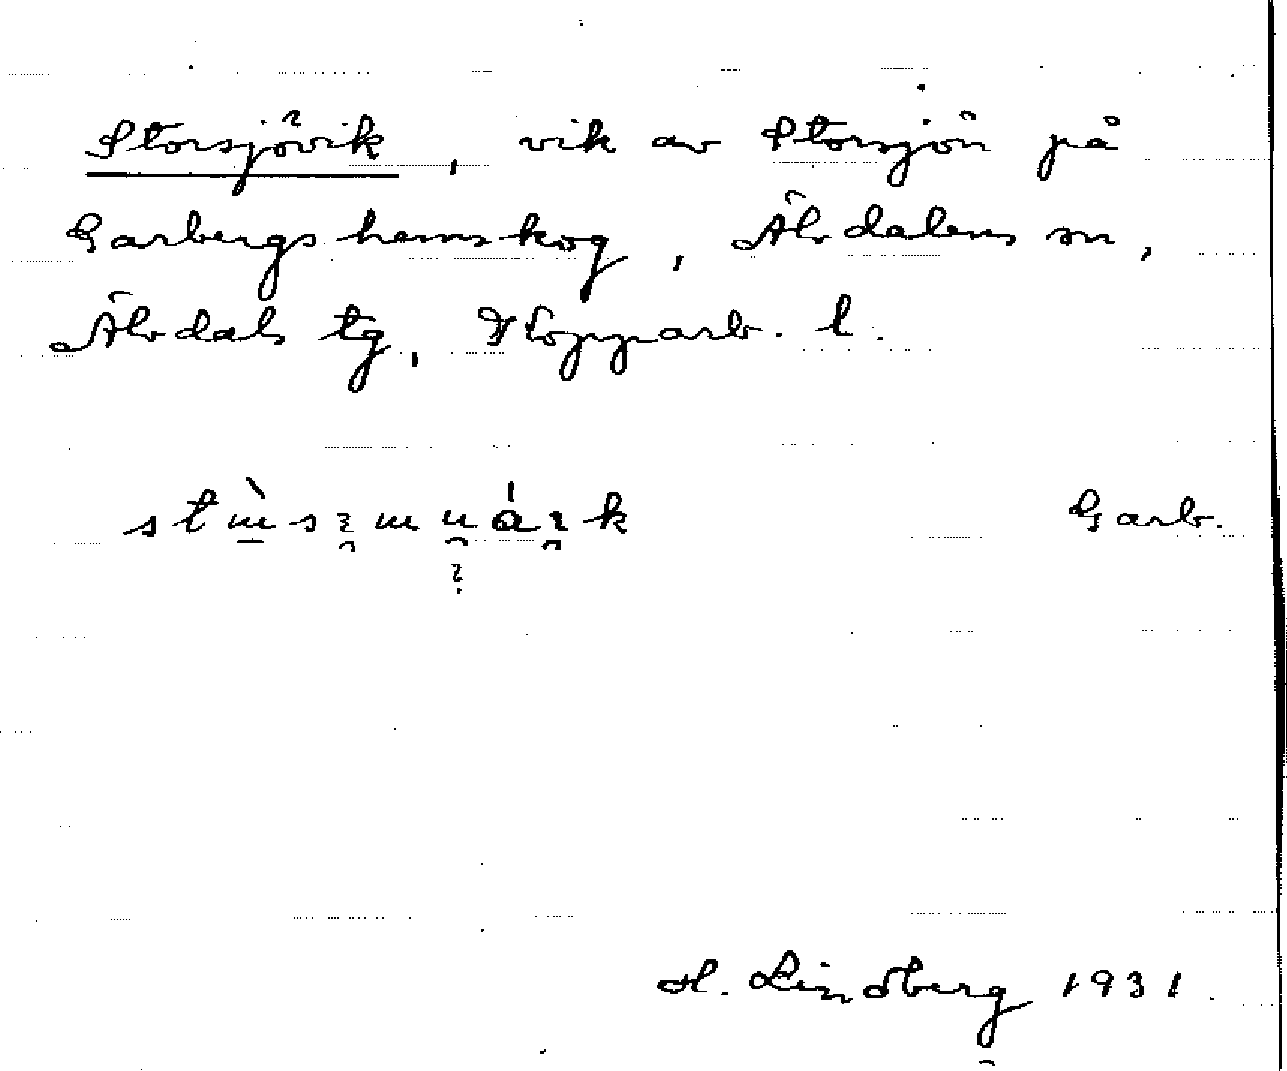 Storsjövik, vik av Storsjön på
Garbergs hemskog, Älvdalens sn,
Älvdals tg, Kopparb. l.
Garb.
H. Lindberg 1931